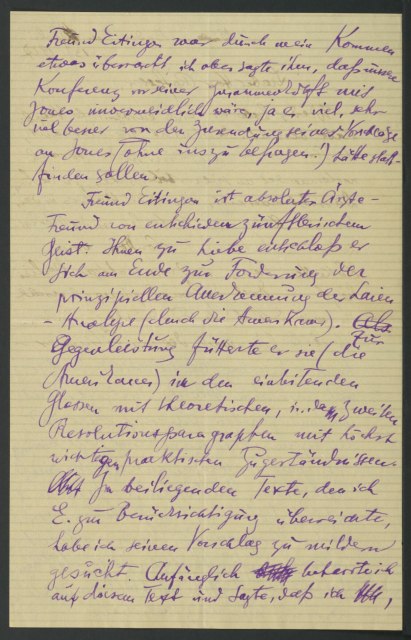 Freund Eitingon war durch mein Kommen
etwas überrascht ich aber sagte ihm, daß unsere
Konferenz vor seiner Zusammenkunft mit
Jones unvermeidlich wäre, ja es viel, sehr
viel besser vor der Zusendung seines Vorschlags
an Jones (ohne uns zu befragen!) hätte statt-
finden sollen.
Freund Eitingon ist absoluter Ärzte-
Freund von entschieden zünftlerischem
Geist. Ihnen zu Liebe entschloß er
sich am Ende zur Forderung der
prinzipiellen Anerkennung der Laien
- Analyse (durch die Amerikaner). Als Zur
Gegenleistung fütterte er sie (die
Amerikaner) in den einleitenden
Glossen mit theoretischen, in dem zweiten
Resolutionsparagraphen mit höchst
wichtigen praktischen Zugeständnissen.
In beiliegenden Texte, den ich
E. zur Berücksichtigung überreichte,
habe ich seinen Vorschlag zu mildern
gesucht. Anfänglich beharrte ich
auf diesem Text und sagte, daß ich